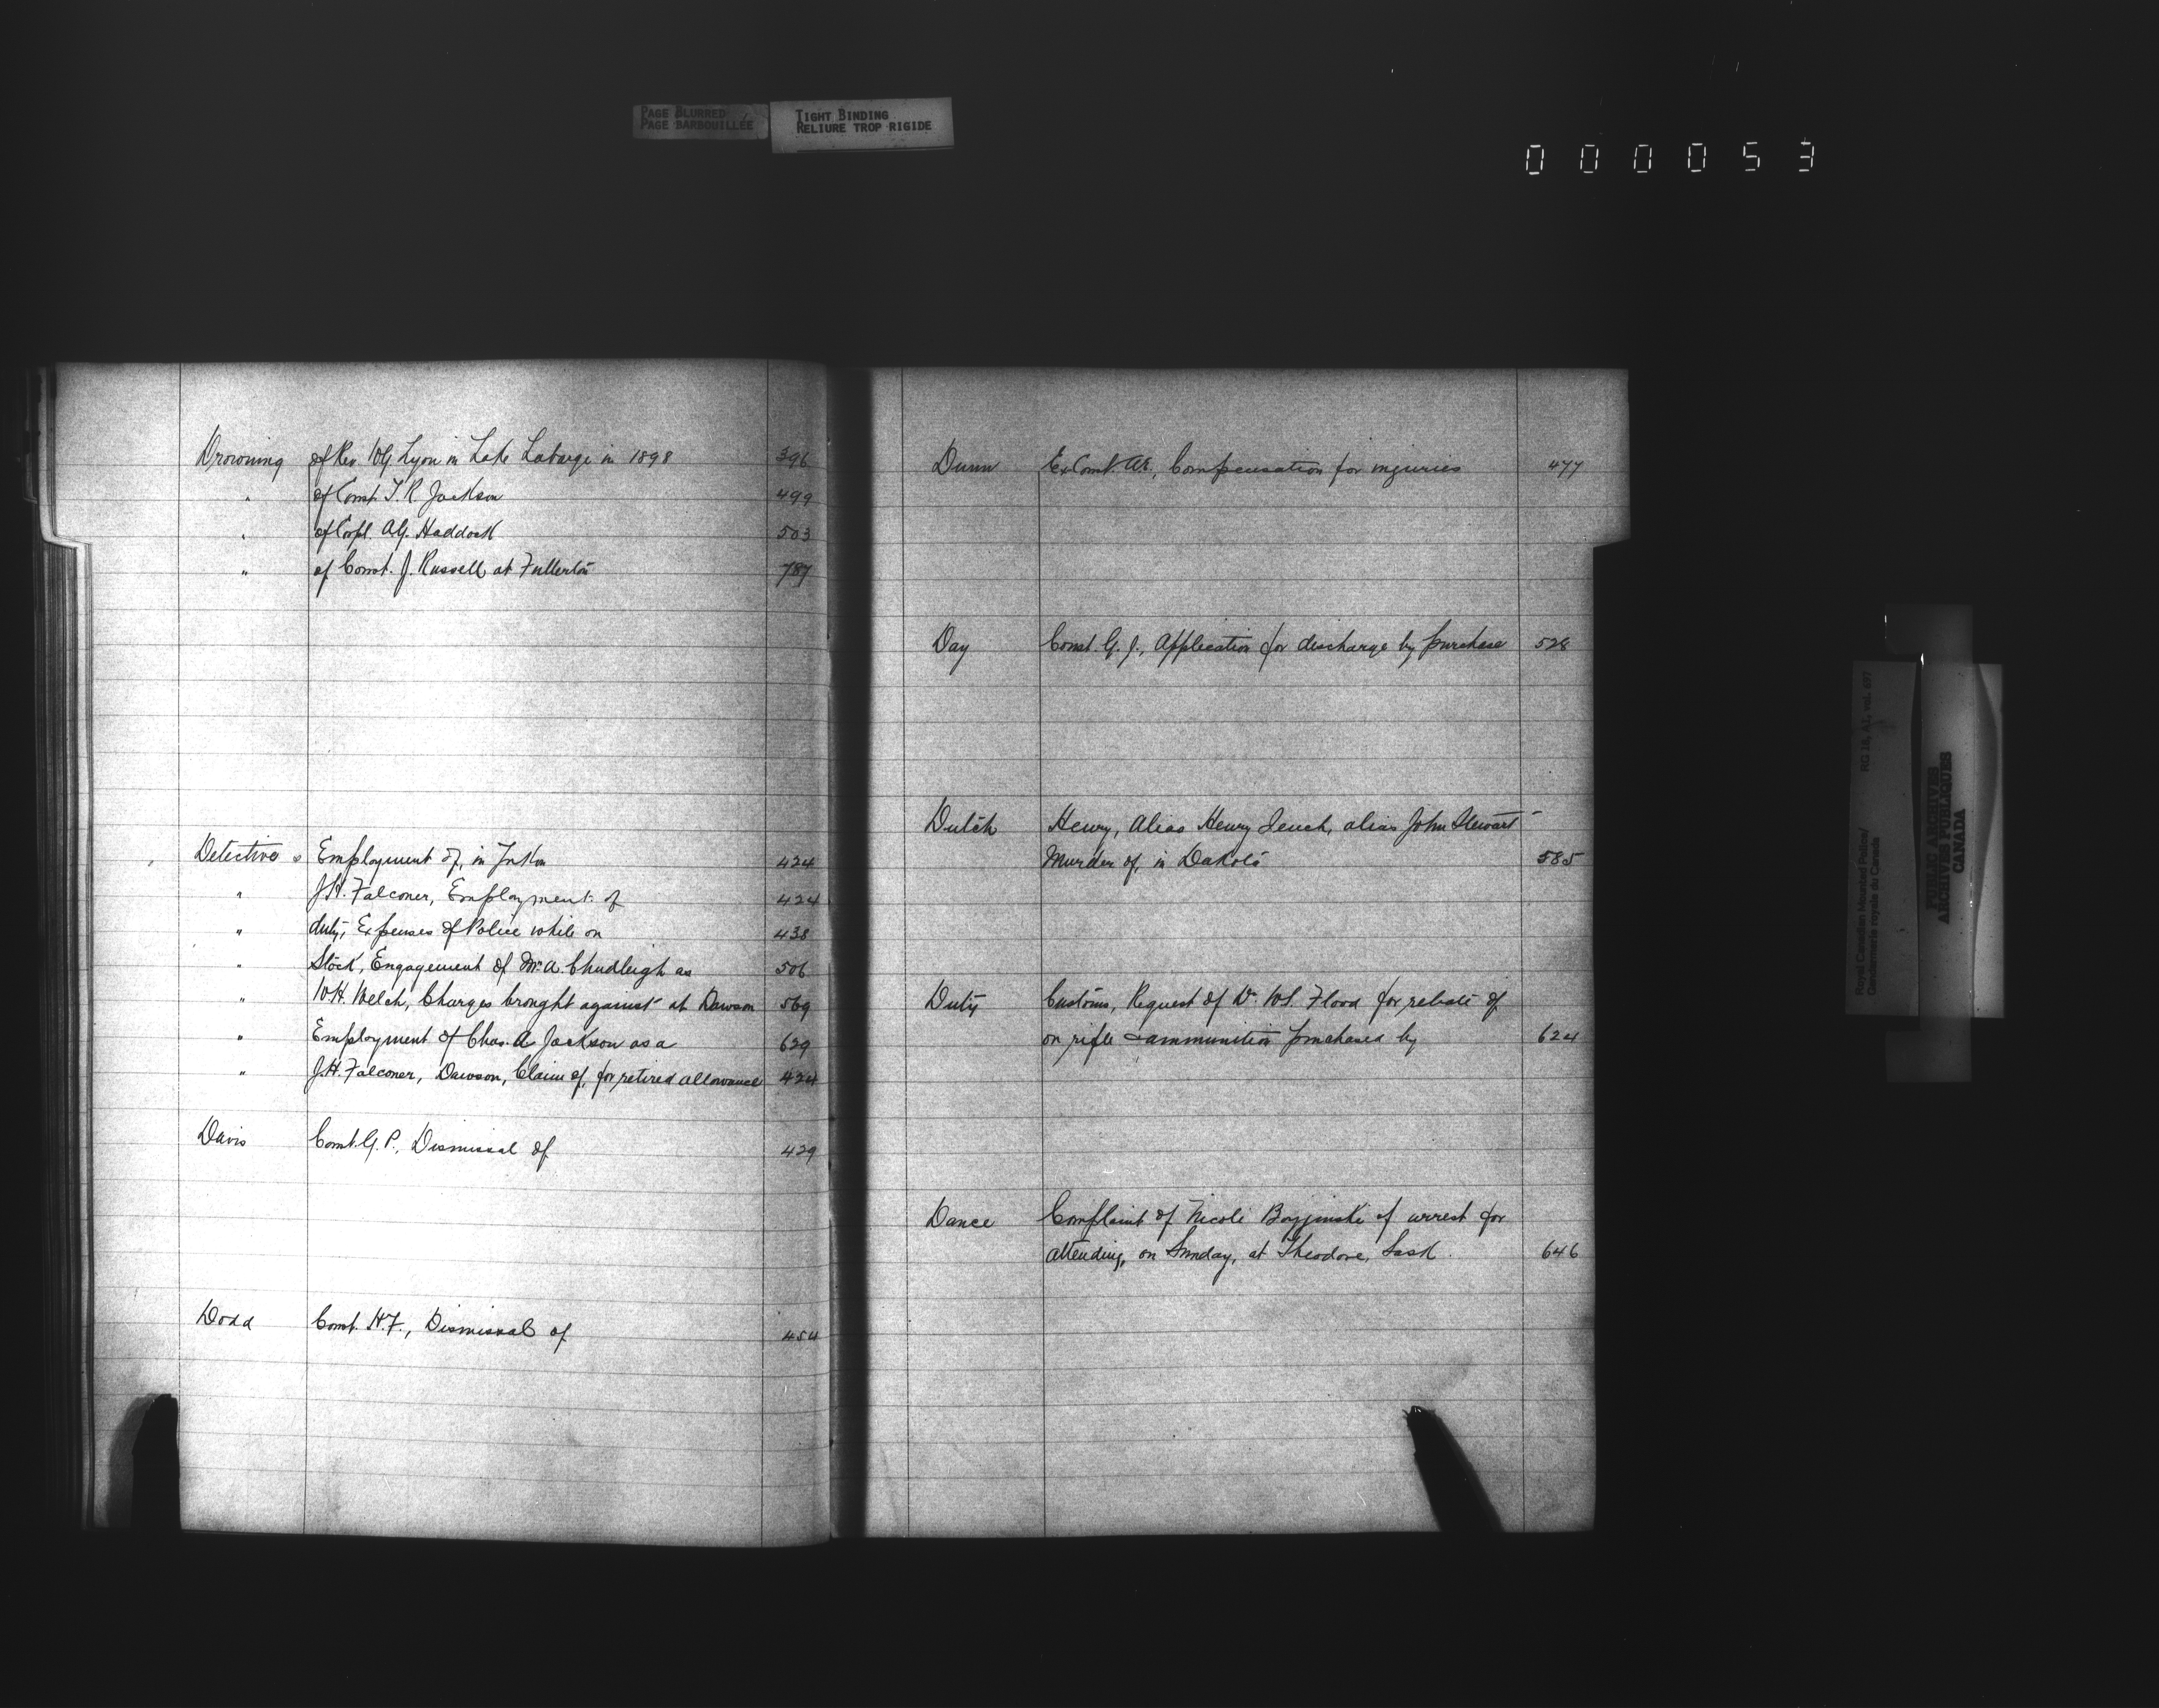 PAGE BLURRED
PAGE BARBOUILLÉE
TIGHT BINDING
RELIURE TROP RIGIDE
000053
Drowning of Rev. W.G. Lyon in Lake Labarge in 1898 396
" of Const. T.R. Jackson 499
" of Corpl. A.G. Haddock 503
" of Const. J. Russell at Fullerton 787
Detectives Employment of, in Yukon 424
" J.H. Falconer, Employment of 424
" duty, Expenses of Police while on 438
" Stock, Engagement of Mr. A. Chudleigh as 506
" W.H. Welch, Charges brought against at Dawson 569
" Employment of Chas. A. Jackson as a 629
" J.H. Falconer, Dawson, Claim of, for retired allowance 424
Davis Const. G.P., Dismissal of 429
Dodd Const. H.F., Dismissal of 454
Dunn Ex Const. A.E., Compensation for injuries 477
Day Const. G.J., Application for discharge by purchase 528
Dutch Henry, Alias Henry Jeuch, alias John Stewart
Murder of, in Dakota 585
Duty Customs, Request of Dr. W.S. Flood for rebate of
on rifle & ammunition purchased by 624
Dance Complaint of Nicoli of arrest for
attending, on Sunday, at Theodore, Sask. 646
Royal Canadian Mounted Police/
Gendarmerie royale du Canada
RG 18, A1, vol. 697
PUBLIC ARCHIVES
ARCHIVES PUBLIQUES
CANADA